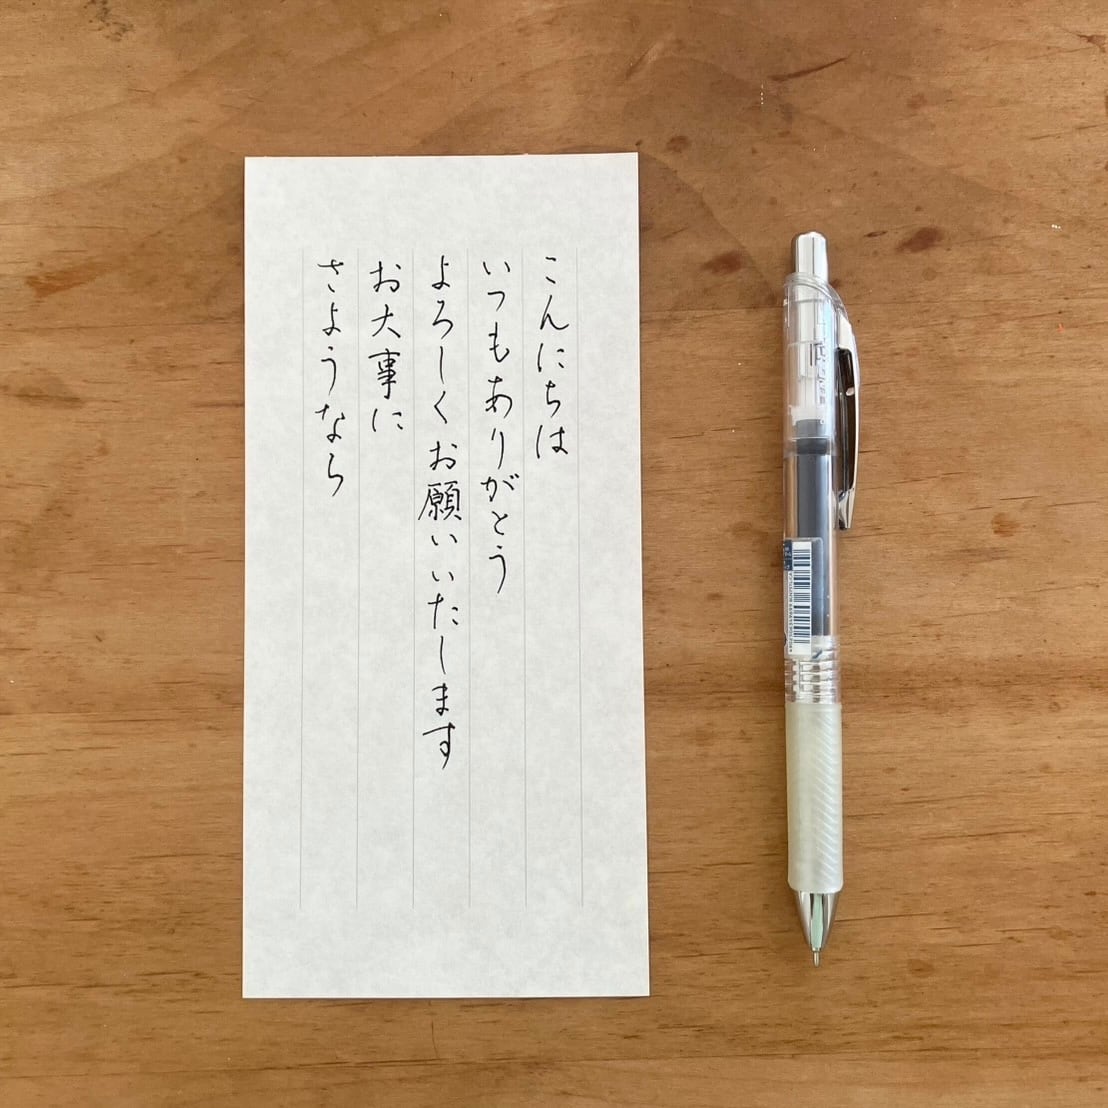 こんにちは
いつもありがとう
よろしくお願いいたします
お大事に
さようなら